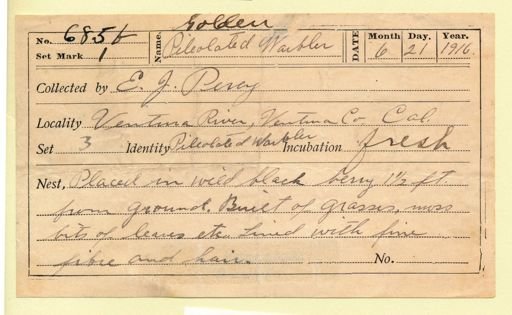 Golden
No. 685b Name. Pileolated Warbler DATE Month 6 Day. 21 Year. 1916.
Set Mark 1
Collected by E. J. Percy
Locality Ventura River, Ventura Co Cal
Set 3 Identity Pileolated Warbler Incubation fresh
Nest, Placed in wild black berry 1½ ft
from ground. Built of grasses, moss
bits of leaves etc. Lined with fine
fibre and hair. No.